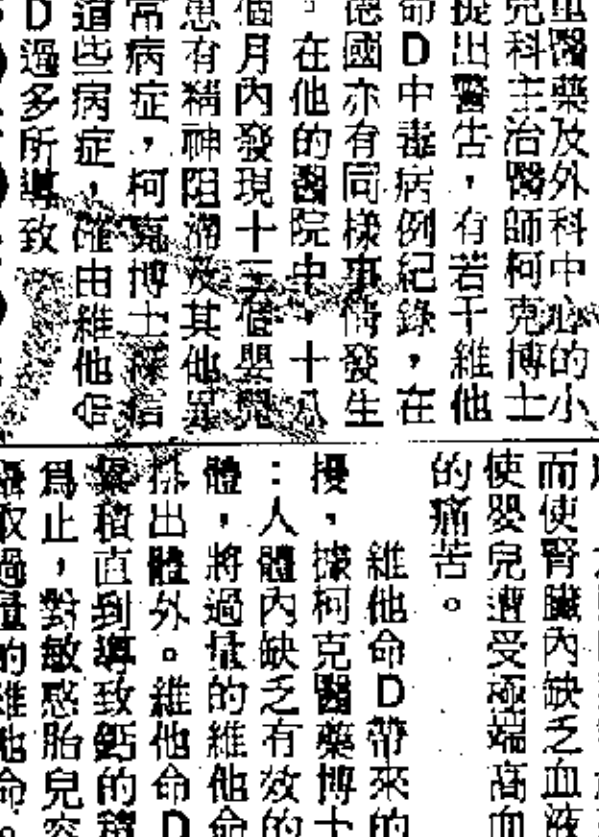 重醫藥及外科中心的小
兒科主治醫師柯克博士
提出警告，有若干維他
命D中毒病例紀錄，在
德國亦有同樣事情發生
。在他的醫院中，十八
個月內發現十三個嬰兒
患有精神阻滯及其他異
常病症，柯克博士
道些病症，確由維他命
D過多所導致
而使腎臟內缺乏血液
使嬰兒遭受極端高血
的痛苦。
維他命D帶來的
擾，據柯克醫藥博士
：人體內缺乏有效的
體，將過量的維他命
排出體外。維他命D
累積直到導致鈣的積
爲止，對敏感胎兒容
攝取過量的維他命。